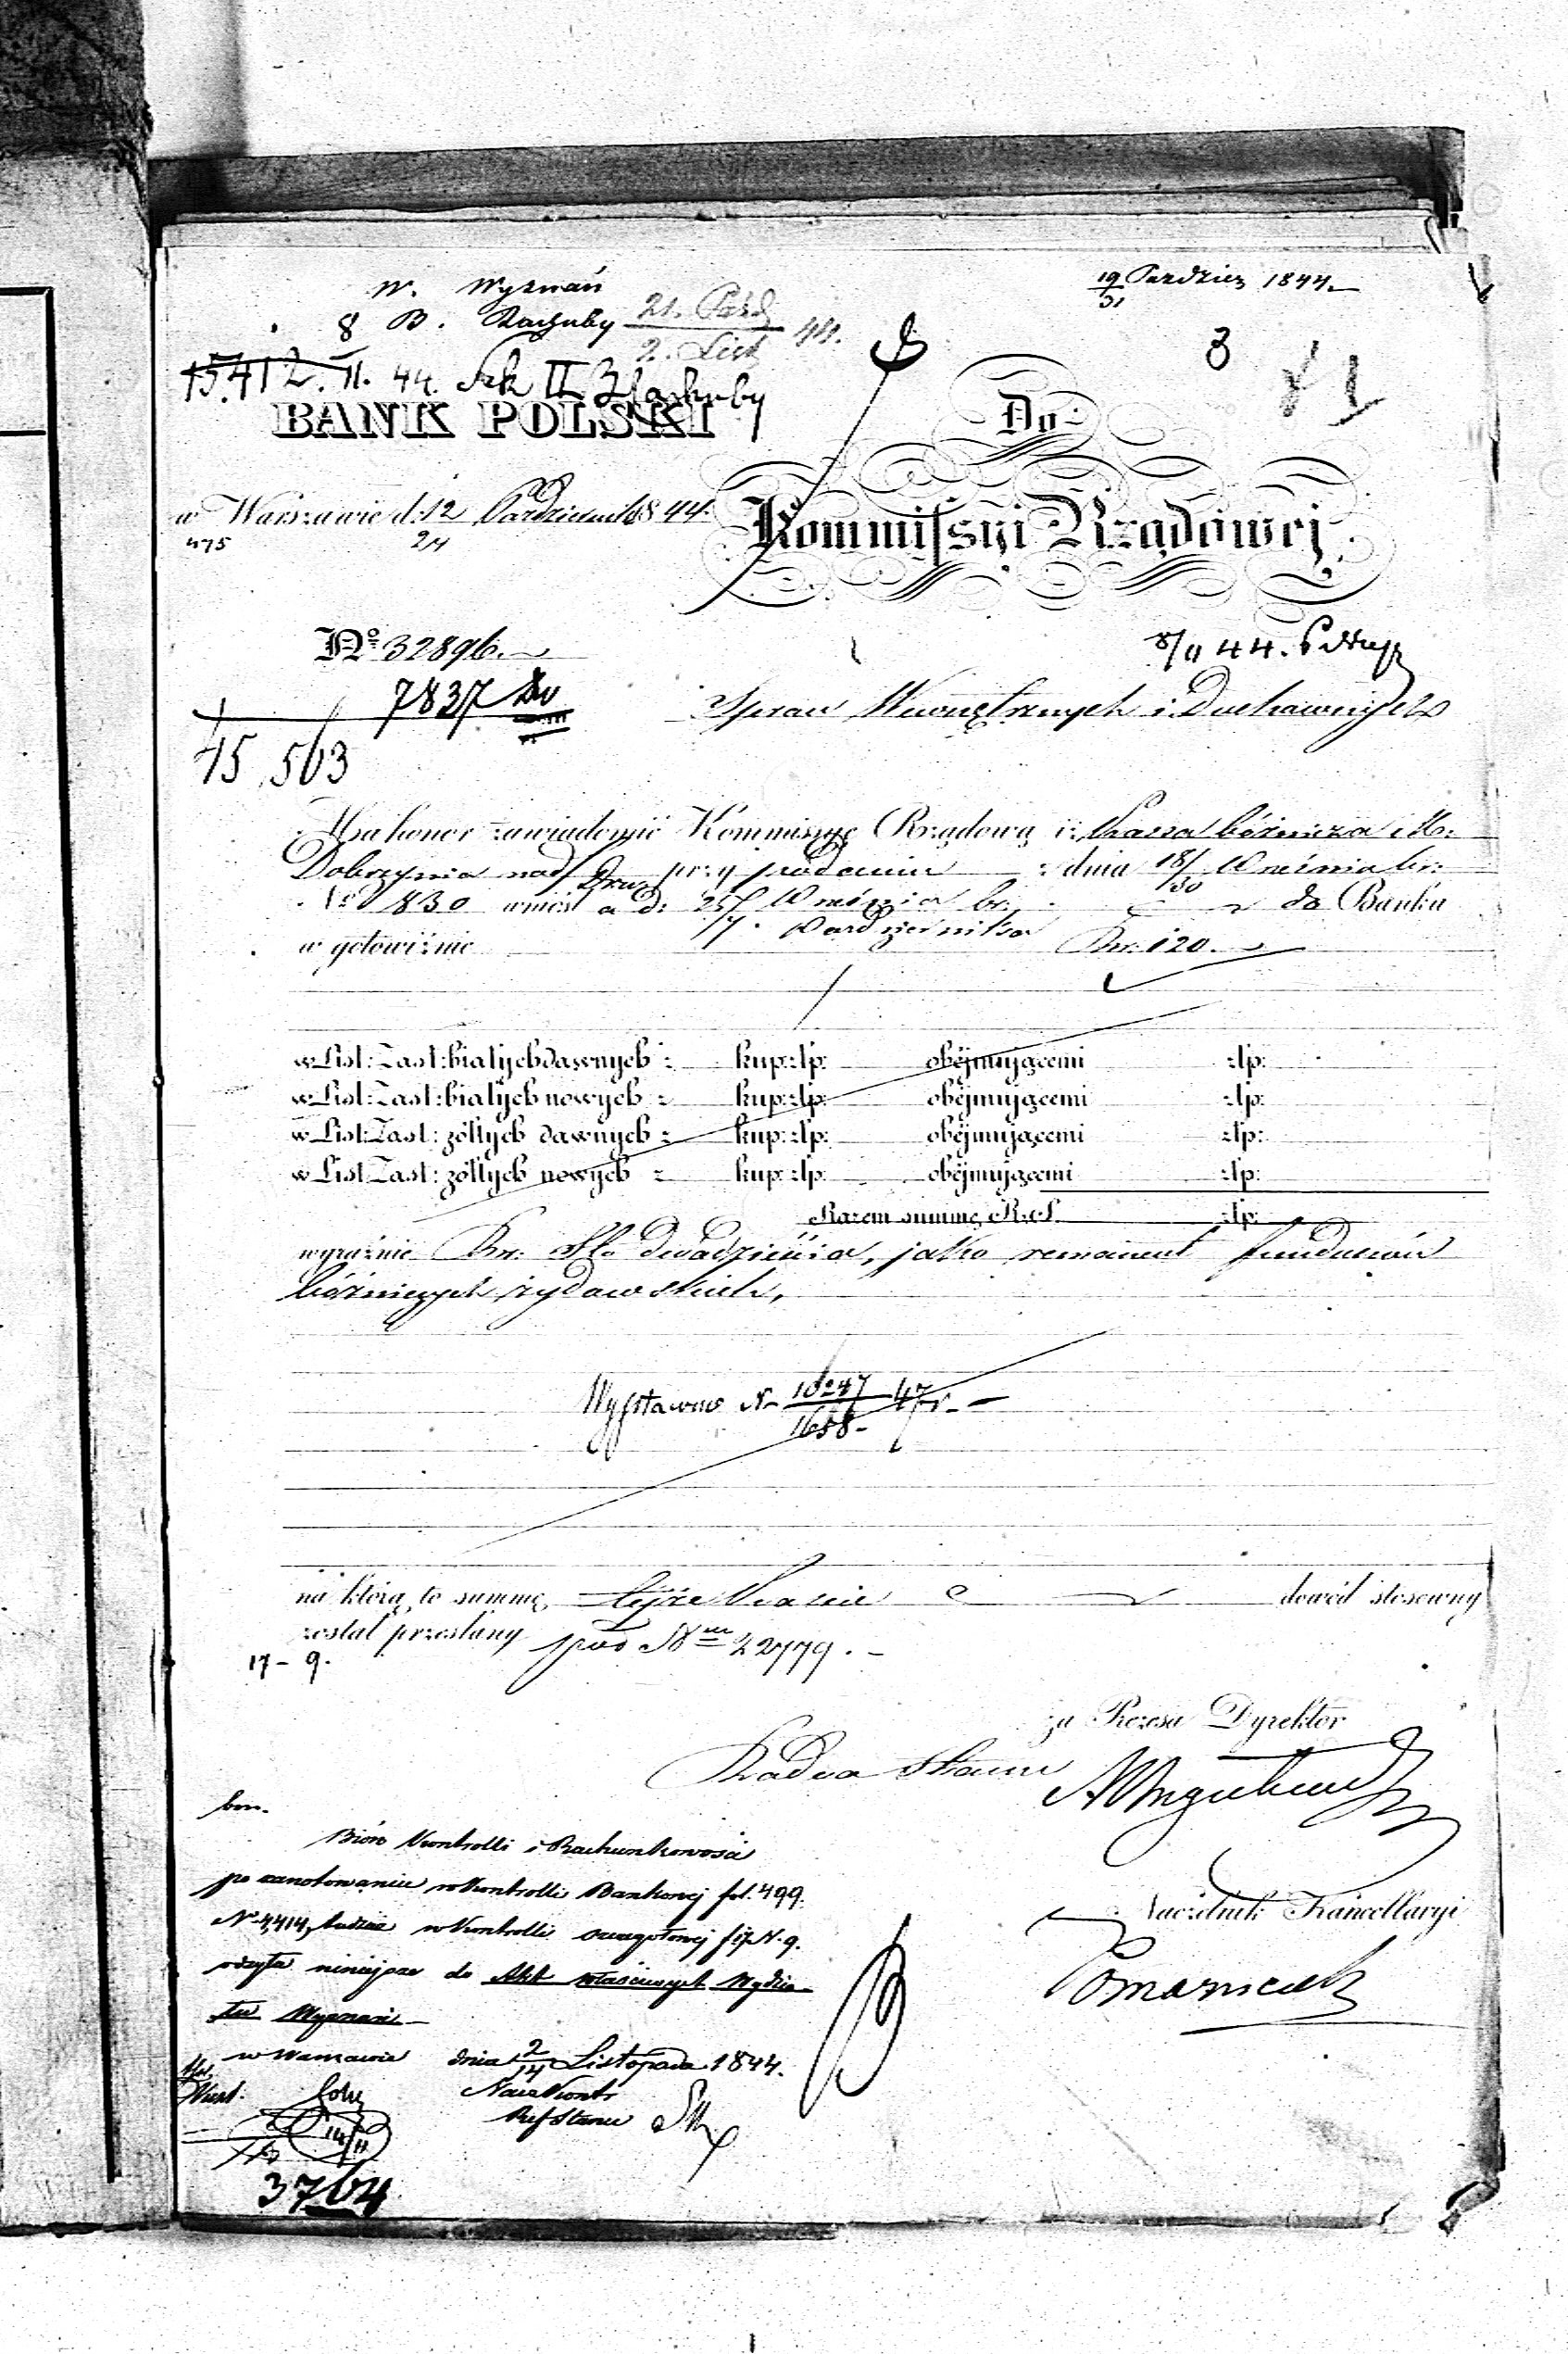 W. Wyznań
19/31 Pazdzier 1844.
8 B. Rachuby 21. Paźd / 2. List 44.
3
15.412. II. 44. Sek II Rachuby
BANK POLSKI
Do
w Warszawie d: 12/24 Październik 1844.
475
Kommissyi Rządowej
Nº 32896.
8/11 44.
7837
Spraw Wewnętrznych i Duchownych
15,503
Ma honor zawiadomić Kommissyę Rządową iż Kassa bóżnicza M:
Dobrzynia nad Drw: przy podaniu z dnia 18/30 Września br:
Nº 830 wniosł a d: 25/7 Września br: Października do Banku
w gotowiźnie Rsr. 120.
w List: Zast: białych dawnych z kup: złp: obejmującemi złp:
w List: Zast: białych nowych z kup: złp: obejmującemi złp:
w List: Zast: żółtych dawnych z kup: złp: obejmującemi złp:
w List: Zast: żółtych nowych z kup: złp: obejmującemi złp:
Razem summę R. S. złp:
wyraźnie Rsr. Sto dwadzieścia, jako remanent funduszów
bóżniczych żydowskich,
1658
na którą to summę tejże Kassie dowód stosowny
został przesłany pod Nm 22779.
17 - 9.
za Prezesa Dyrektor
Radca Stanu
Bióro Kontrolli i Rachunkowości
po zanotowaniu w Kontrolli Bankowej fol. 499.
Nº 4,414, tudzież w Kontrolli szczegółowej f 17 N. 9.
odsyła niniejsze do Akt właściwych Wydzia-
łu Wyznań
Naczelnik Kancellaryi
w Warszawie dnia 2/14 Listopada 1844.
Nacz Kontr
Ref Stanu
3764